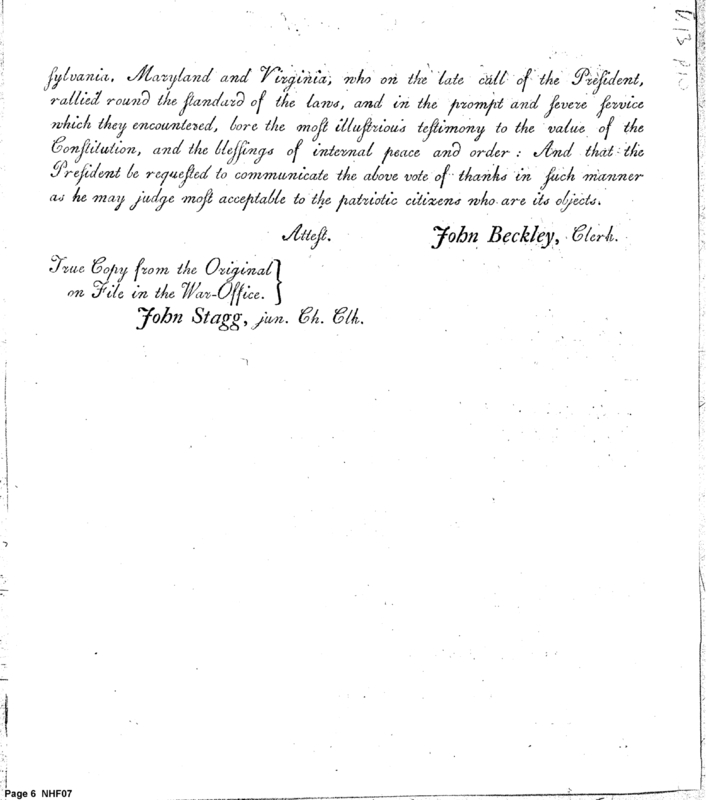 V13 P10
ſylvania, Maryland and Virginia, who on the late call of the Preſident,
rallied round the ſtandard of the laws, and in the prompt and ſevere ſervice
which they encountered, bore the moſt illuſtrious teſtimony to the value of the
Conſtitution, and the bleſſings of internal peace and order : And that the
Preſident be requeſted to communicate the above vote of thanks in ſuch manner
as he may judge moſt acceptable to the patriotic citizens who are its objects.
Atteſt. John Beckley, Clerk.
True Copy from the Original
on File in the War-Office.
John Stagg, jun. Ch. Clk.
Page 6 NHF07